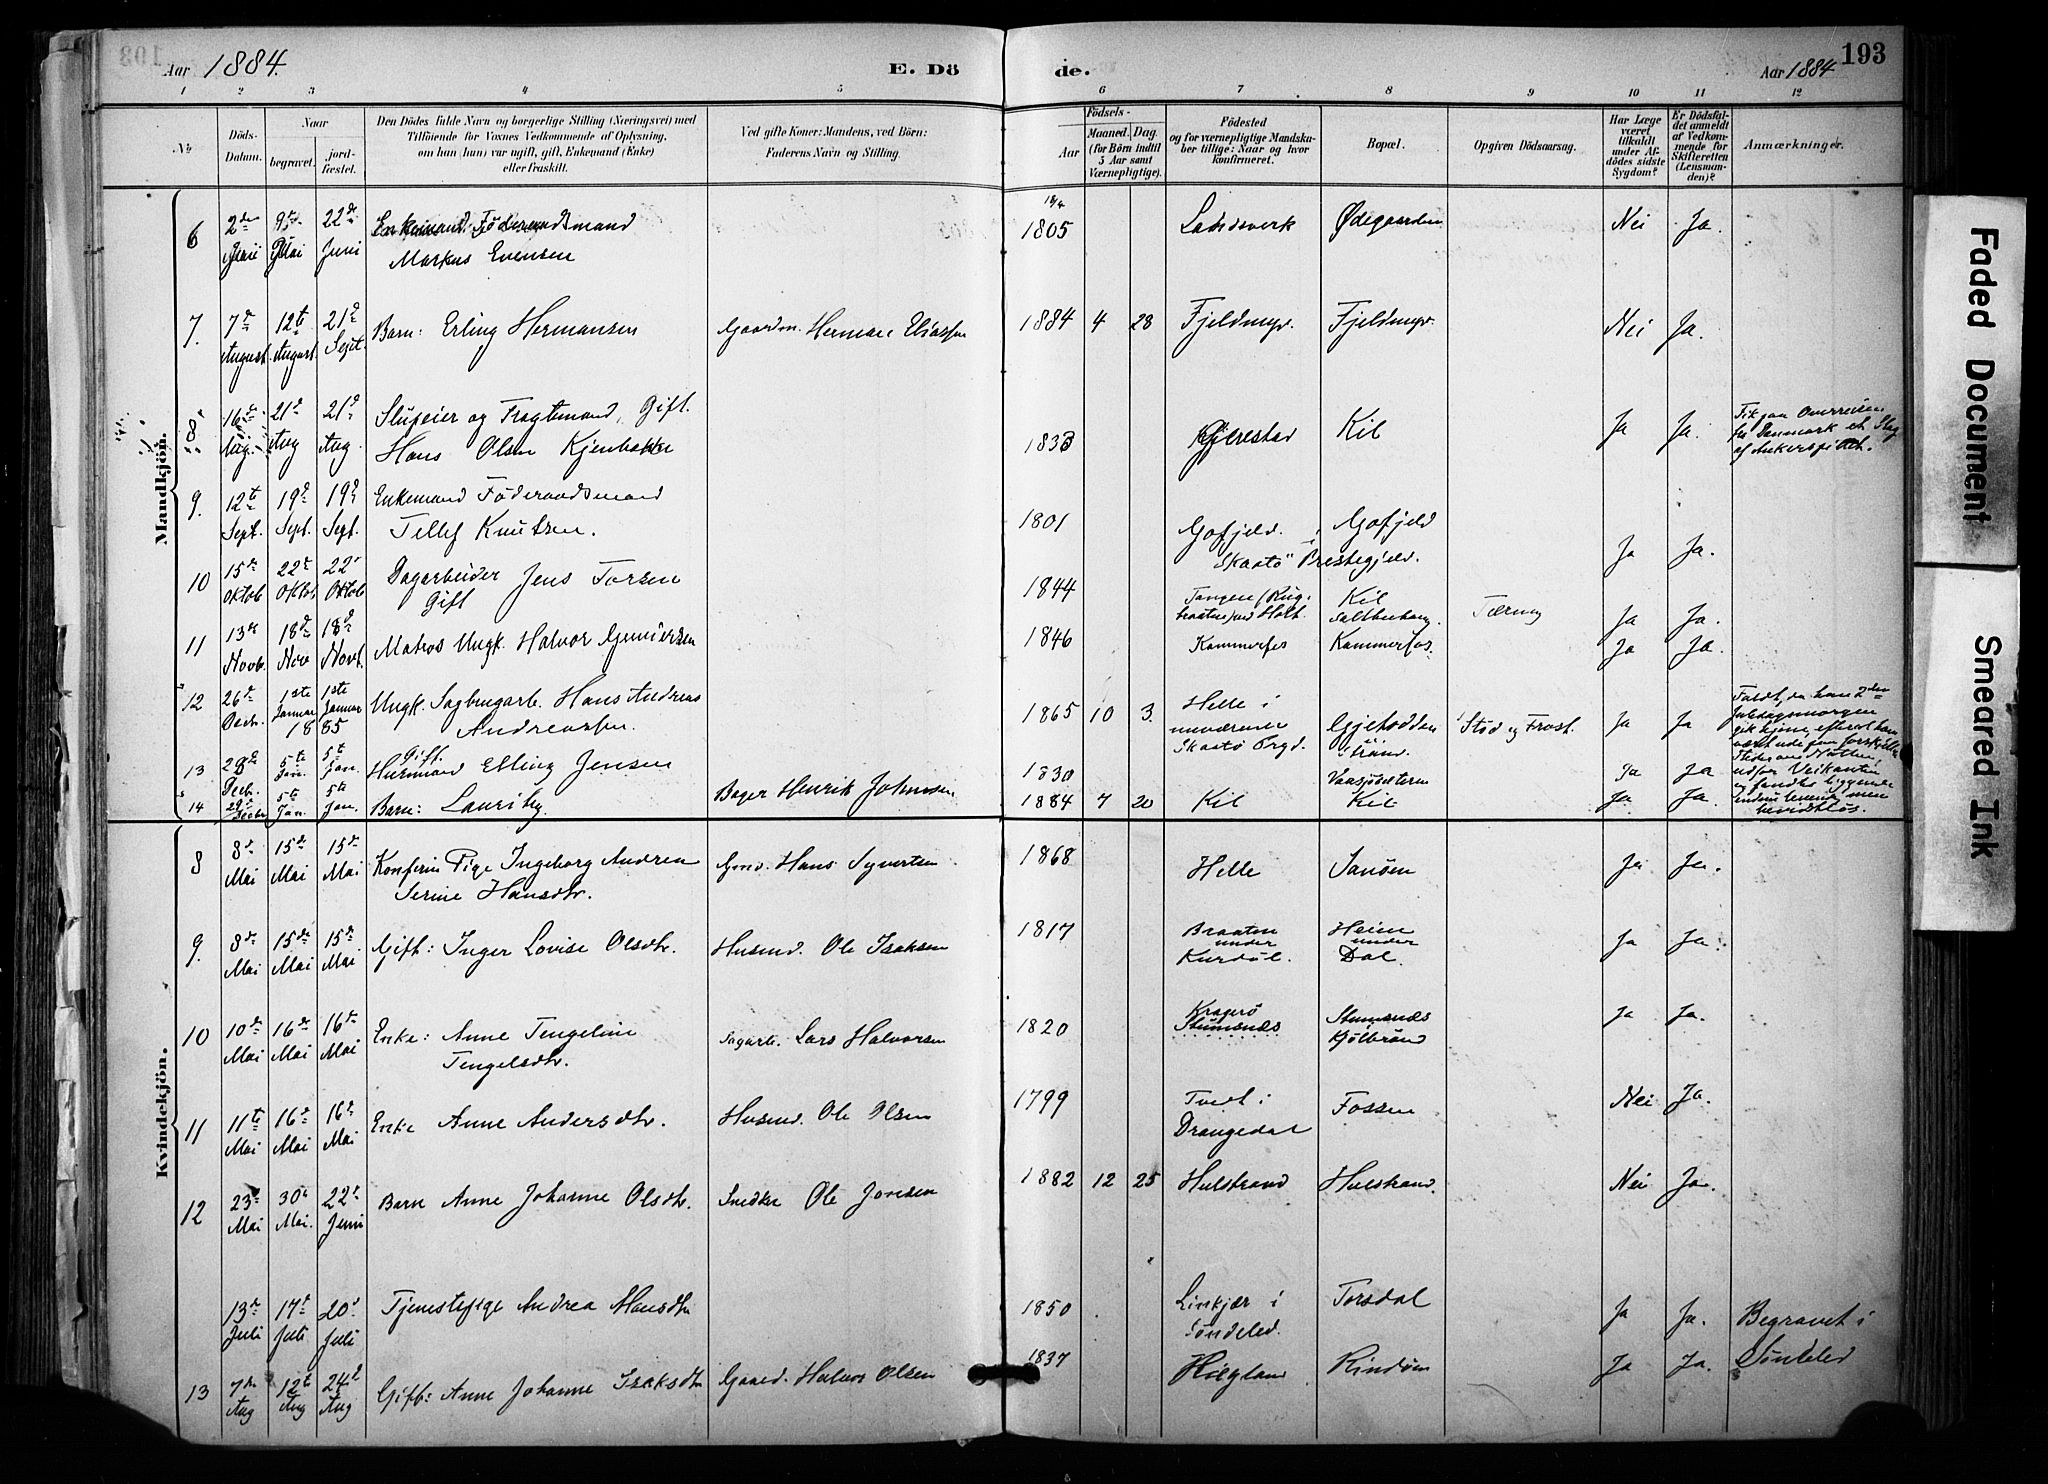 Aar 1884.
E. Dö
de.
Aar 1884
193
1 2 3 4 5 6 7 8 9 10 11 12
No
Döds-
Datum.
Naar
begravet.
jord-
fæstet.
Den Dödes fulde Navn og borgerlige Stilling (Næringsvei) med
Tilföiende for Voxnes Vedkommende af Oplysning,
om han (hun) var ugift, gift, Enkemand (Enke)
eller fraskilt.
Ved gifte Koner: Mandens, ved Börn:
Faderens Navn og Stilling.
Födsels-
Aar
Maaned. Dag.
(for Börn indtil
5 Aar samt
Værnepligtige).
Födested
og for værnepligtige Mandsku-
ber tillige: Naar og hvor
konfirmeret.
Bopæl.
Opgiven Dödsaarsag.
Har Læge
været
tilkaldt
under Af-
dödes sidste
Sygdom?
Er Dödsfal-
det anmeldt
af Vedkom-
mende for
Skifteretten
(Lensman-
den)?
Anmærkninger.
Mandkjön.
6 2de Juni 9de Mai 22de Juni Enkemand Föderaadsmand
Markus Evensen 1805 Landsverk Ödegaarden Nei Ja.
7. 7de August 12te August 21de Sept. Barn: Erling Hermansen Gaardm. Herman Eliassen 1884 4 28 Fjeldmyr. Fjeldmyr. Nei Ja.
8 16de Aug. 21de Aug 21de Aug. Slupeier og Fragtemand, Gift.
Hans Olsen Kjenbakke 1833 Gjerestad Kil Ja Ja. Fik paa Overreisen
fra Danmark et Slag
af Ankerspillet.
9. 12te Sept. 19de Sept. 19de Sept. Enkemand Föderaadsmand
Tellef Knutsen. 1801 Gofjeld. i Gofjeld
Skaatö Prestegjeld. Ja Ja.
10 15de Oktob 22de Oktob. 22de Oktob Dagarbeider Jens Torsen
Gift 1844 Tangen Kil
Ja Ja.
11 13de Novb. 18de Nov 18de Novb. Matros Ungk. Halvor Gunnersen 1846 Kammerfos Kammerfos. Ja Ja.
12 26de Decb. 1ste Januar 1ste Januar 1885 Ungk. Sagbrugarb. Hans Andreas
Andreassen. 1865 10 3. Helle i
nuværende
Skaatö Prgd. Stöd og Frost. Ja Ja
13 28de Decb. 5te Jan. 5te Jan. Gift.
Husmand Elling Jensen 1830 Ja Ja
14 29de Decbr 5te Jan. 5te Jan. Barn: Bager Henrik Johnsen 1884 7 20 Kil Kil Ja. Ja.
Kvindekjön.
8 8de Mai 15de Mai 15de Mai Konfirm Pige Ingeborg Andrea
Serine Hansdtr. Gmd. Hans Syvertsen 1868 Helle Sanöen Ja Ja.
9. 8de Mai 15de Mai 15de Mai Gift: Inger Lovise Olsdtr. Husmd. Ole Isaksen 1817 Braaten
under
Kurdöl. Heien
under
Dal. Ja Ja.
10 10de Mai 16de Mai 16de Mai Enke: Anne Tengeline
Tengelsdtr. Sagarb. Lars Halvorsen 1820 Kragerö
Stumsnæs Stumsnæs
Kjölbrönd Ja Ja.
11 11te Mai 16de Mai 16de Mai Enke Anne Andersdtr. Husmd. Ole Olsen 1799 Tvet i
Drangedal Fossen Nei Ja.
12 23de Mai 30de Mai. 22de Juni Barn Anne Johanne Olsdtr. Snedker Ole Jonsen 1882 12 25 Hulstrand Hulstrand. Nei Ja.
13de Juli 17de Juli 20de Juli Tjenestepige Andrea Hansdtr 1850 Linkjær i
Söndeled. Torsdal Ja Ja. Begravet i
Söndeled
13 7de Aug 12te Aug 24de Aug Gift: Anne Johanne Isaksdtr Gaard. Halvor Olsen 1837 Kindöm Ja Ja.
Faded Document
Smeared Ink